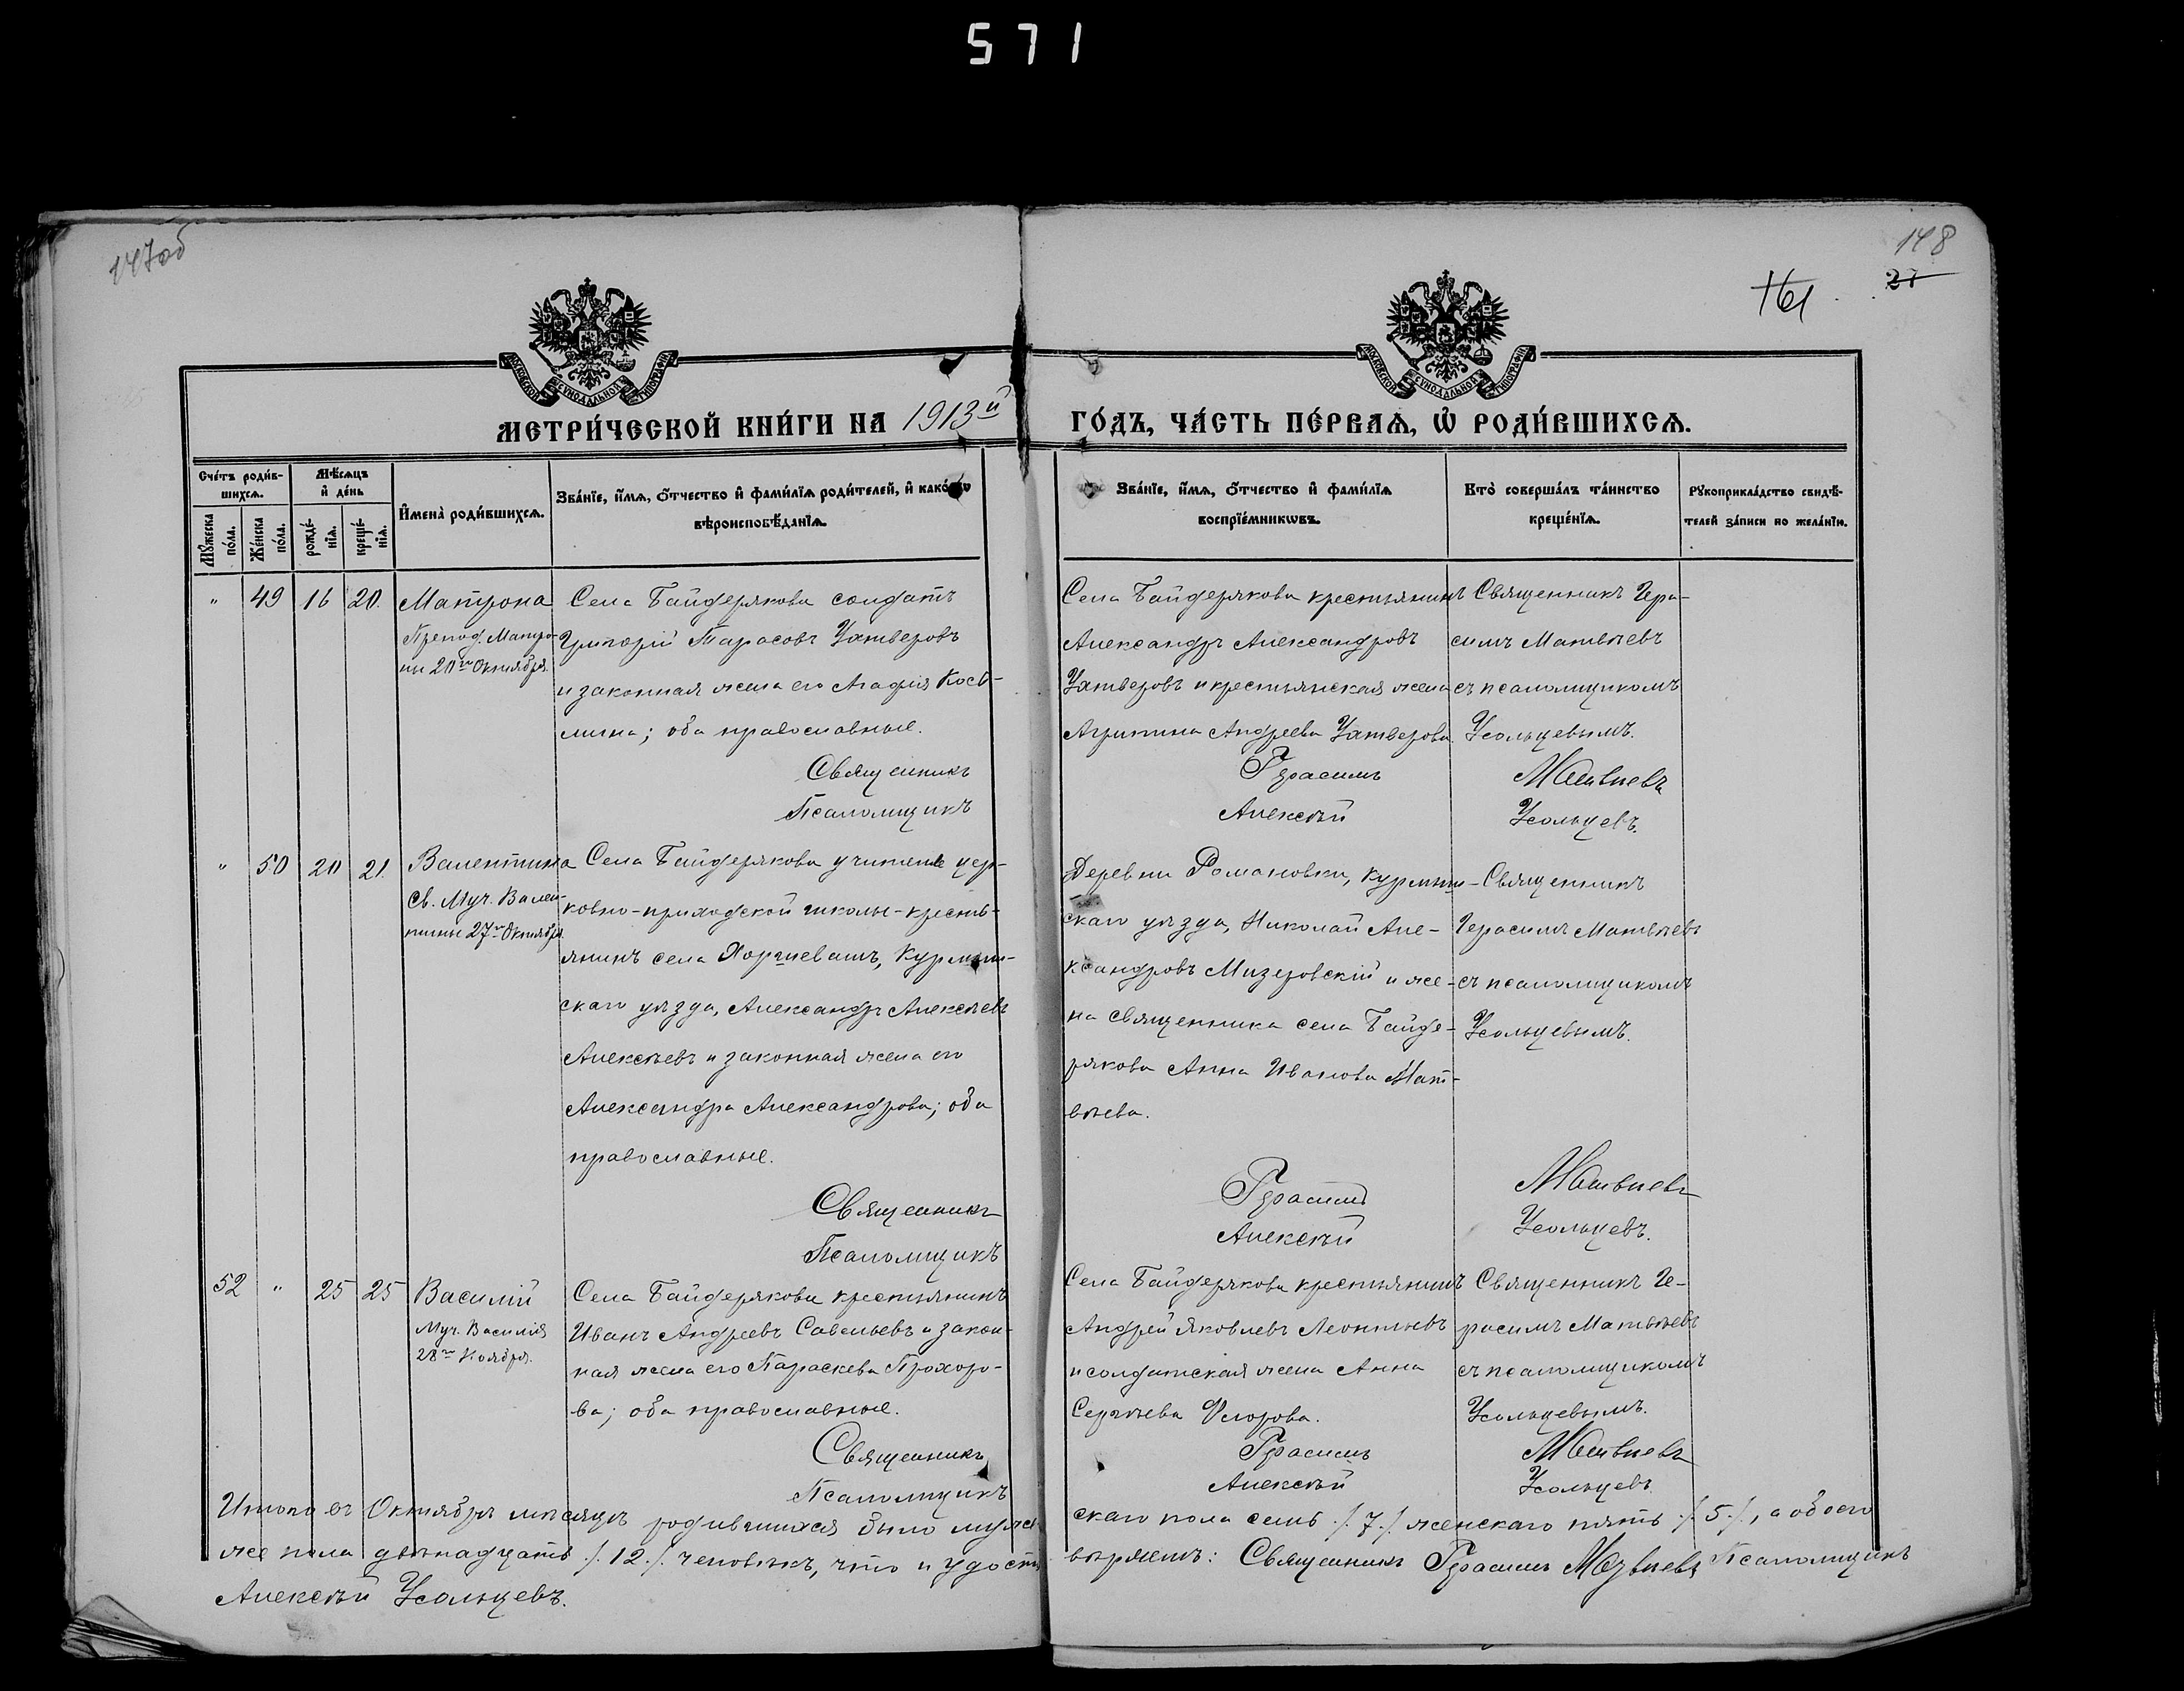 571
147об
148
27
161
МОСКОВСКОЙ СѴНОДАЛЬНОЙ ТИПОГРАФІИ
МОСКОВСКОЙ СѴНОДАЛЬНОЙ ТИПОГРАФІИ
МЕТРИ́ЧЕСКОЙ КНИ́ГИ НА 1913й ГО́ДЪ, ЧА́СТЬ ПЕ́РВАѦ, Ѡ҆ РОДИ́ВШИХСѦ.
Сче́тъ роди́в-
шихсѧ.
Мѣ́сѧцъ
и҆ де́нь
Мꙋ́жеска по́ла.
Же́нска по́ла.
рожде́-
нїѧ.
креще́-
нїѧ.
И҆мена̀ роди́вшихсѧ.
Зва́нїе, и҆́мѧ, ѻ҆́тчество и҆ фами́лїѧ роди́телей, и҆ како́гѡ
вѣроисповѣ́данїѧ.
Зва́нїе, и҆́мѧ, ѻ҆́тчество и҆ фами́лїѧ
воспрїе́мникѡвъ.
Кто̀ соверша́лъ та́инство
креще́нїѧ.
Рꙋкоприкла́дство свидѣ́-
телей за́писи по жела́нїю.
" 49 16 20.
Матрона
Препод. Матро-
ны 20го Октября.
Села Байдерякова солдатъ
Григорій Тарасовъ Ухтверовъ
и законная жена его Агафія Косъ-
мина; оба православные.
Священникъ
Псаломщикъ
Села Байдерякова крестьянинъ
Александръ Александровъ
Ухтверовъ и крестьянская жена
Агрипина Андреева Ухтверова.
Герасимъ
Алексѣй
Священникъ Гера-
симъ Матвѣевъ
съ псаломщикомъ
Усольцевымъ.
Матвѣевъ
Усольцевъ.
" 50 20 21.
Валентина
Св. Муч. Вален-
тины 27го Октября
Села Байдерякова учитель цер-
ковно-приходской школы-кресть-
янинъ села Хоршевашъ, Курмыш-
скаго уѣзда, Александръ Алексѣевъ
Алексѣевъ и законная жена его
Александра Александрова; оба
православные.
Священникъ
Псаломщикъ
Деревни Романовки, Курмыш-
скаго уѣзда, Николай Але-
ксандровъ Мизеровскій и же-
на священника села Байде-
рякова Анна Иванова Мат-
вѣева.
Герасимъ
Алексѣй
Священникъ
Герасимъ Матвѣевъ
съ псаломщикомъ
Усольцевымъ.
Матвѣевъ
Усольцевъ.
52 " 25 25
Василій
Муч. Василія
28го Ноября.
Села Байдерякова крестьянинъ
Иванъ Андреевъ Савельевъ и закон-
ная жена его Параскева Прохоро-
ва; оба православные.
Священникъ
Псаломщикъ
Села Байдерякова крестьянинъ
Андрей Яковлевъ Леонтьевъ
и солдатская жена Анна
Сергѣева Ѳлорова.
Герасимъ
Алексѣй
Священникъ Ге-
расимъ Матвѣевъ
съ псаломщикомъ
Усольцевымъ.
Матвѣевъ
Усольцевъ
Итого въ Октябрѣ мѣсяцѣ родившихся было муже-
скаго пола семь ./. 7 ./. женскаго пять ./. 5 ./., а обоего
же пола двѣнадцать ./. 12 ./. человѣкъ, что и удосто-
вѣряемъ: Священникъ Герасимъ Матвѣевъ Псаломщикъ
Алексѣй Усольцевъ.